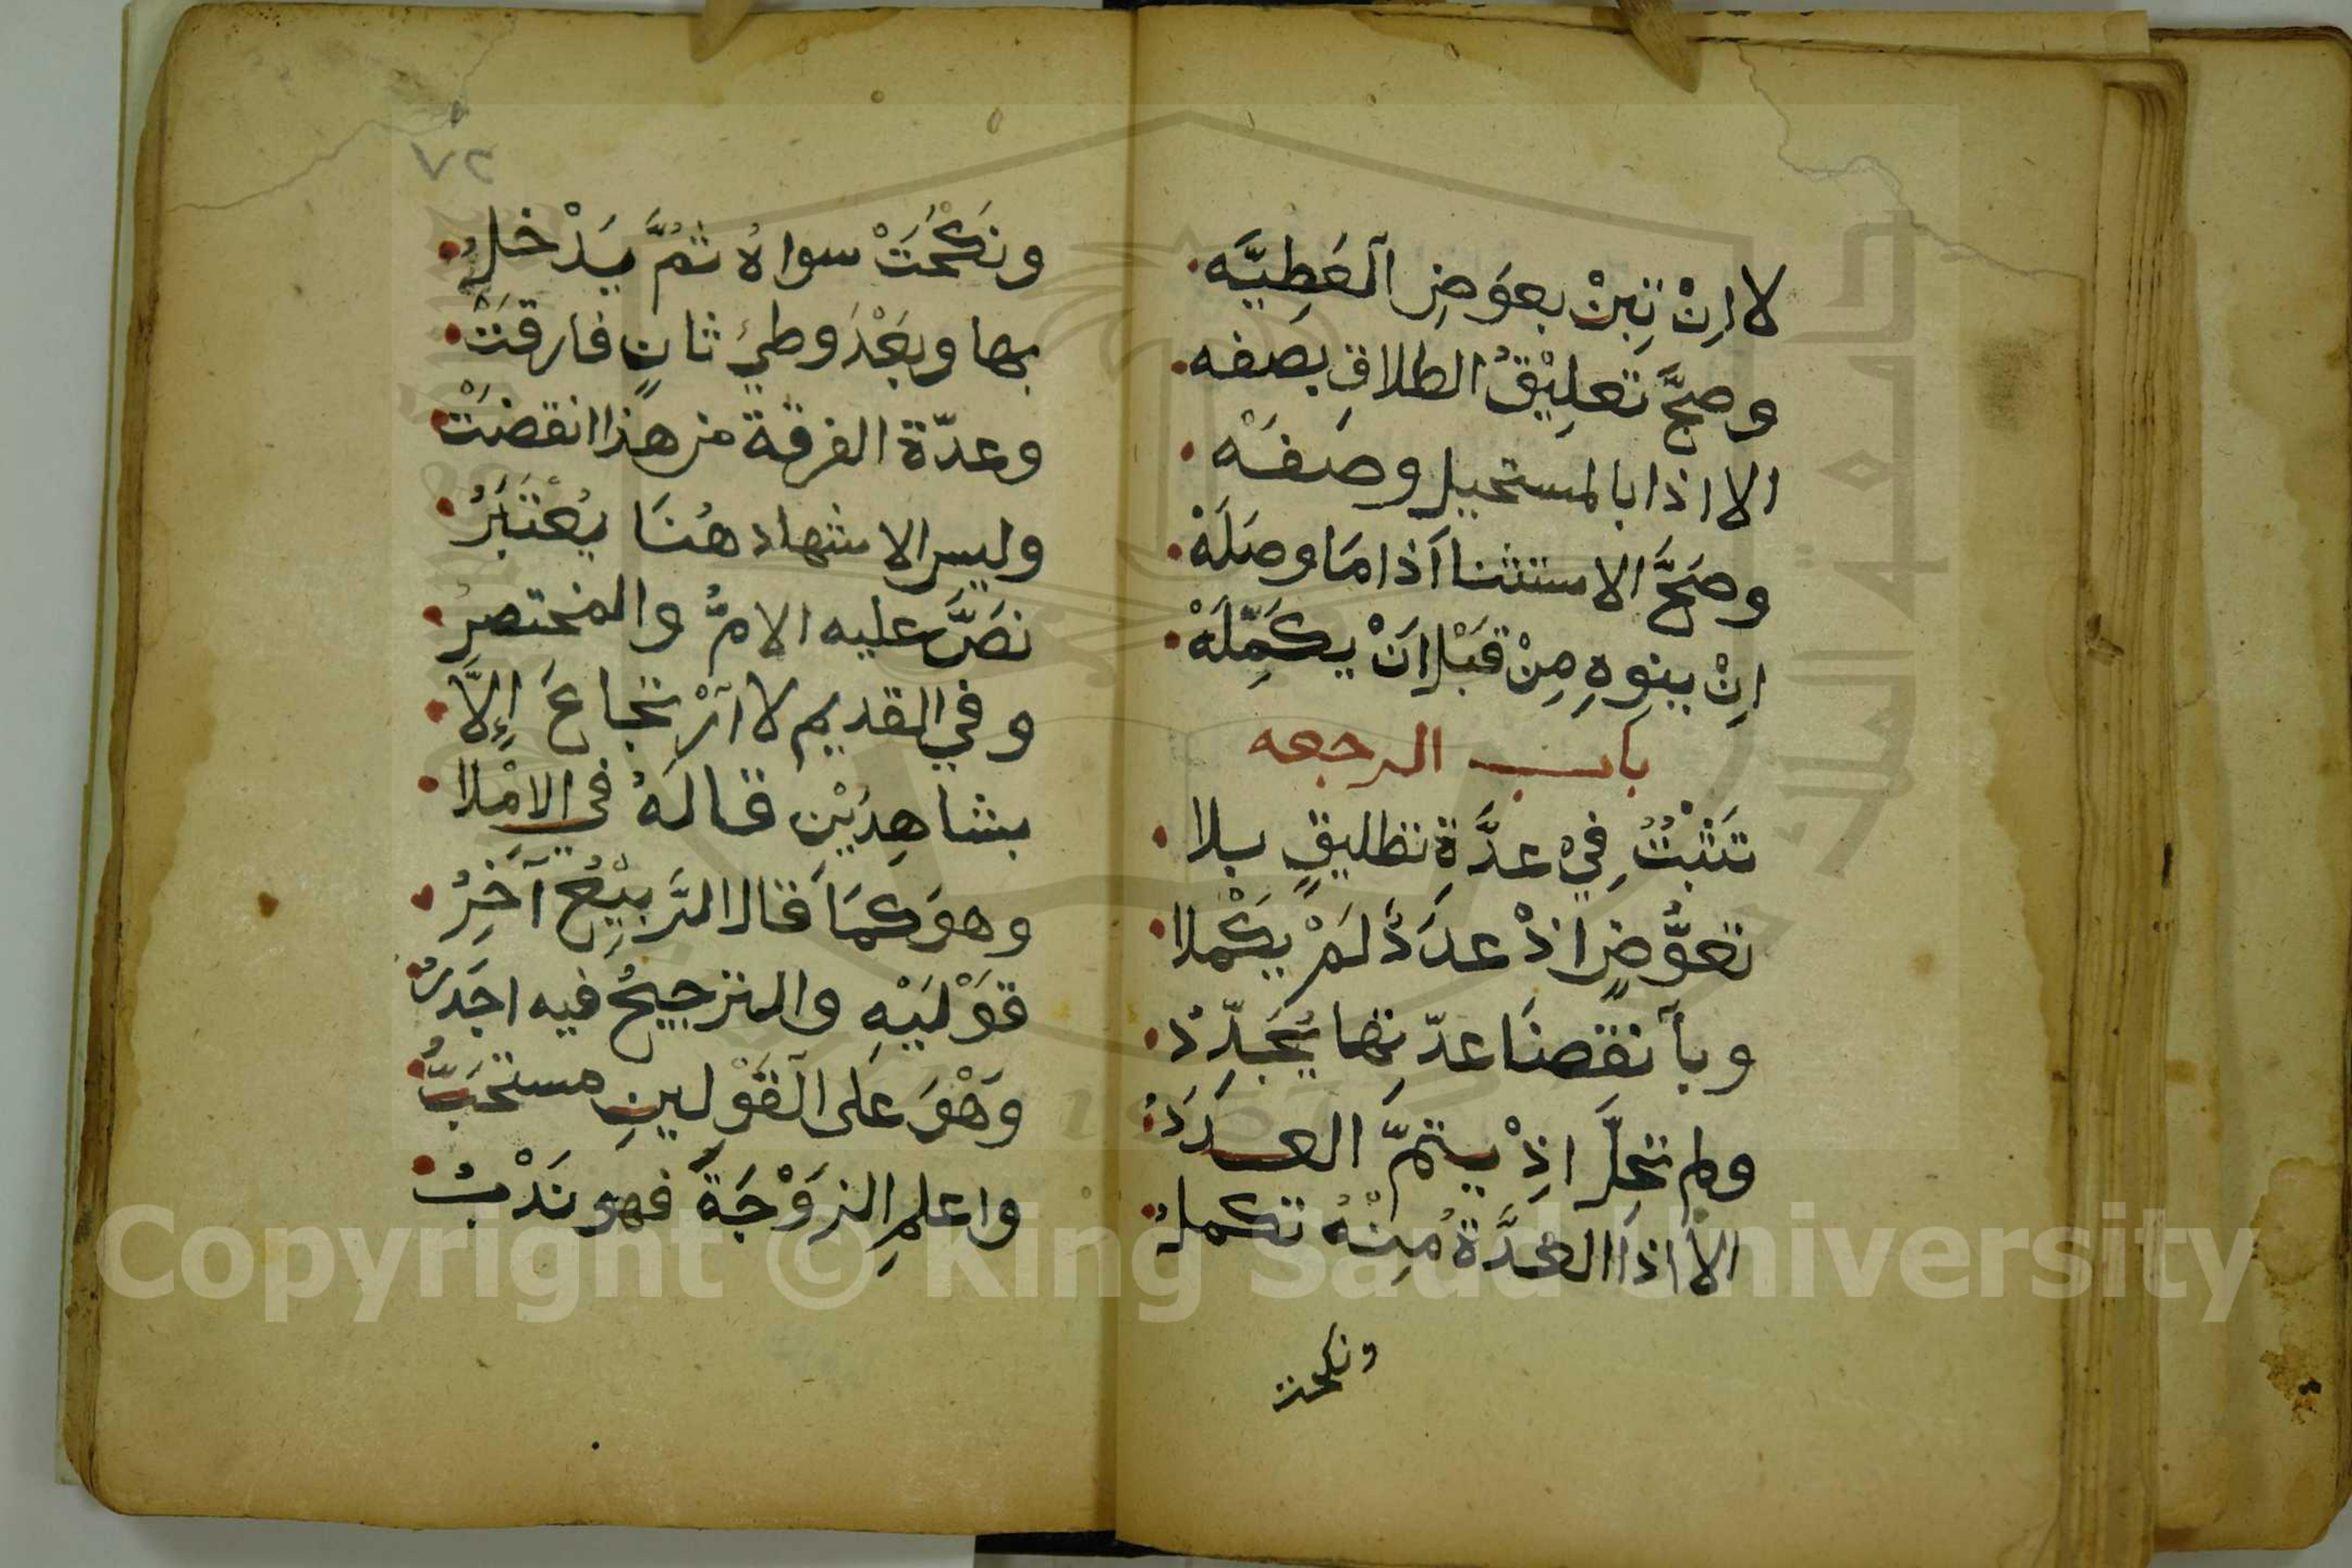 لا اِنْ تَبِنْ بِعِوَضِ اَلْعَطِيَّه
وصحَّ تَعلِيْقُ الطلاقِ بصفه
الا اذا بالمستحيل وصَفَهْ
وصَحَّ الاستثنا اَذا مَا وصَلَهْ
اِنْ ينوِهِ مِنْ قَبْل اَنْ يكَمِّلَهْ
باب الرجعه
تَثْبُتُ فِيْ عدَّةِ تطليقٍ بلا
تعوُّضٍ اذْ عدَدٌ لَمْ يكْمُلا
وبانقضَا عدّتِها يُجَدَّدُ
ولم تحلَّ اذِْ يتمّ العددُ
الا اذَا العدَّةُ مِنْهُ تكملُ
ونكحت
٧٢
ونَكَحَتْ سواهُ ثُمَّ يَدْخلُ
بها وبَعْدَ وطيِ ثانٍ فارقَتْ
وعدّة الفرقة من هذا انقضَتْ
وليس الاشهاد هُنَا يُعْتَبَرُ
نَصَّ عليه الامُّ والمختصرُ
وفي القديم لا اَرْتجاعَ اِلاَّ
بشاهِدَيْنِ قالهُ في الاِمْلا
وهوَ كمَا قَال الرَّبِيْعُ آخَرُ
قَوْلَيْهِ والترجيحُ فيه اجَدرُ
وَهْوَ عَلى اَلْقَوْلينِ مستحَبُّ
واعلمِ الزوْجَةَ فهو نَدْبُ
Copyright © King Saud University
1957